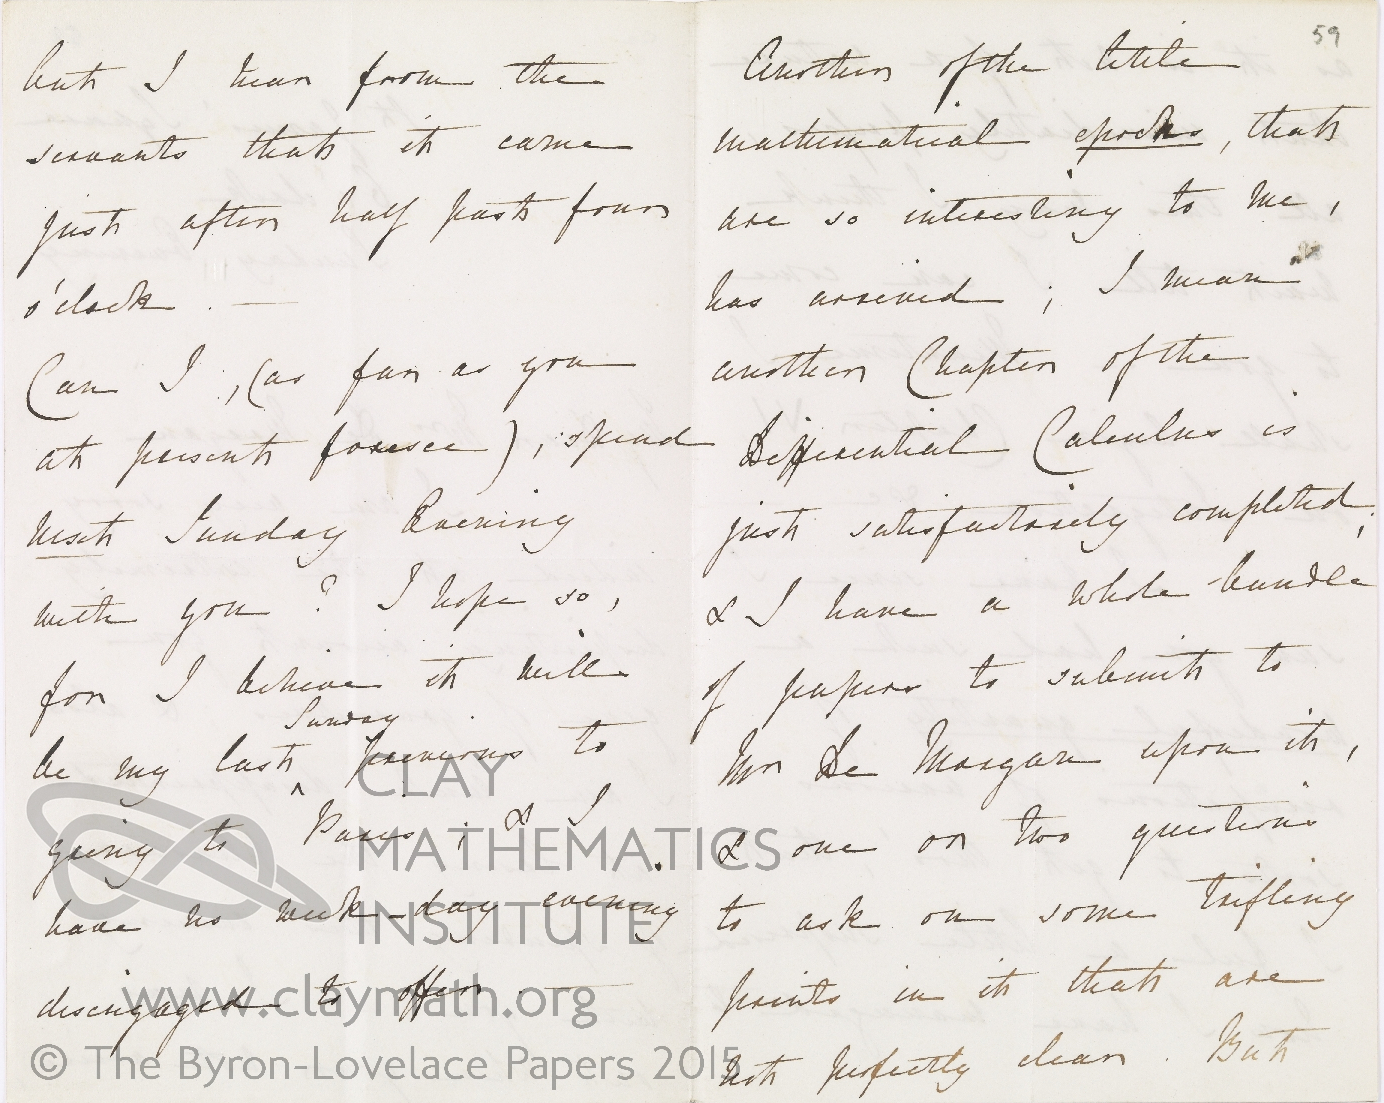 but I hear from the
servants that it came
just after half past four
o'clock. —
Can I, (as far as you
at present foresee), spend
next Sunday Evening
with you? I hope so,
for I believe it will
be my last ^Sunday previous to
going to Paris; & I
have no week-day evening
disengaged to offer. —
59
Another of the little
mathematical epochs, that
are so interesting to me,
has arrived; I mean
another Chapter of the
Differential Calculus is
just satisfactorily completed,
& I have a whole bundle
of papers to submit to
Mr De Morgan upon it,
& one or two questions
to ask on some trifling
points in it that are
not perfectly clear. But
CLAY
MATHEMATICS
INSTITUTE
www.claymath.org
© The Byron-Lovelace Papers 2015